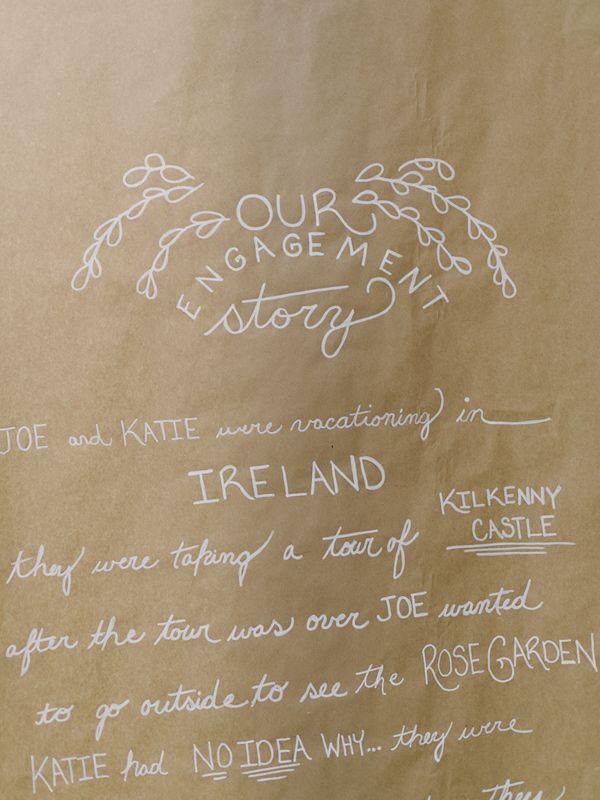 OUR
ENGAGEMENT
story
JOE and KATIE were vacationing in
IRELAND
they were taking a tour of KILKENNY CASTLE
after the tour was over JOE wanted
to go outside to see the ROSE GARDEN
KATIE had NO IDEA WHY... they were